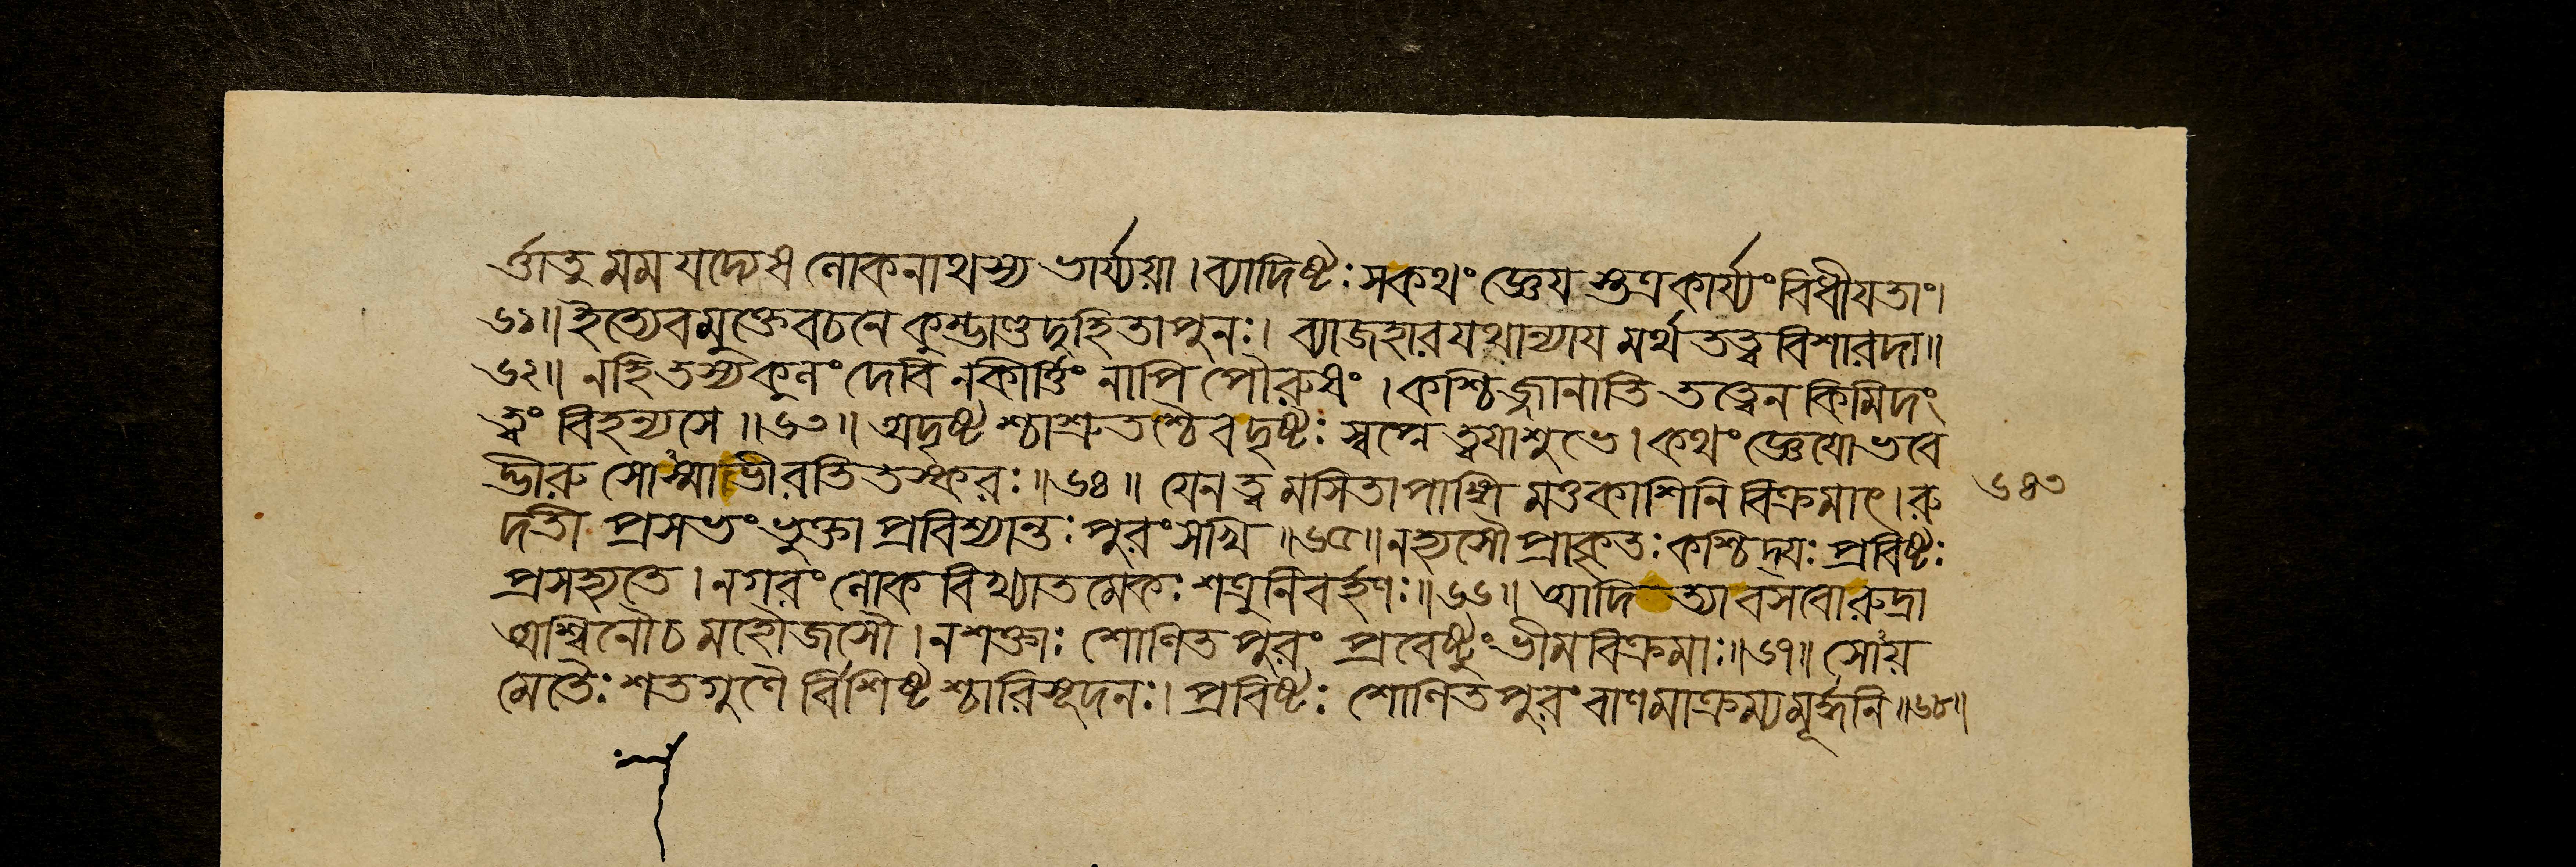 র্ত্তাতু মম যদ্যেষ লোকনাথস্য ভার্য্যয়া । ব্যাদিষ্টঃ স কথং জ্ঞেয স্তত্র কার্য্যং বিধীযতাং ।
৬১ ॥ ইত্যেবমুক্তে বচনে কুম্ভাণ্ডদুহিতা পুনঃ । ব্যাজহার যথান্যায মর্থতত্ত্ববিশারদা ॥
৬২ ॥ নহি তস্য কুলং দেবি ন কীর্ত্তিং নাপি পৌরুষং । কশ্চিজ্জানাতি তত্ত্বেন কিমিদং
ত্বং বিহন্যসে ॥ ৬৩ ॥ অদৃষ্টশ্চাশ্রুতশ্চৈব দৃষ্টঃ স্বপ্নে ত্বযা শুভে । কথং জ্ঞেযো ভবে
দ্ভীরু সোঽস্মাভীরতিতস্করঃ ॥ ৬৪ ॥ যেন ত্বমসিতাপাঙ্গি মত্তকাশিনি বিক্রমাৎ । রু
৬৪৩
দতী প্রসভং ভুক্তা প্রবিশ্যান্তঃপুরং সখি ॥ ৬৫ ॥ নহ্যসৌ প্রাকৃতঃ কশ্চিদ্যঃ প্রবিষ্টঃ
প্রসহ্যতে । নগরং লোকবিখ্যাতমেকঃ শত্রুনিবর্হণঃ ॥ ৬৬ ॥ আদিত্যা বসবো রুদ্রা
অশ্বিনৌ চ মহৌজসৌ । ন শক্তাঃ শোণিতপুরং প্রবেষ্টুং ভীমবিক্রমাঃ ॥ ৬৭ ॥ সোঽয়
মেতৈঃ শতগুণৈ র্বিশিষ্টশ্চারিসূদনঃ । প্রবিষ্টঃ শোণিতপুরং বাণমাক্রম্য মূর্দ্ধনি ॥ ৬৮ ॥